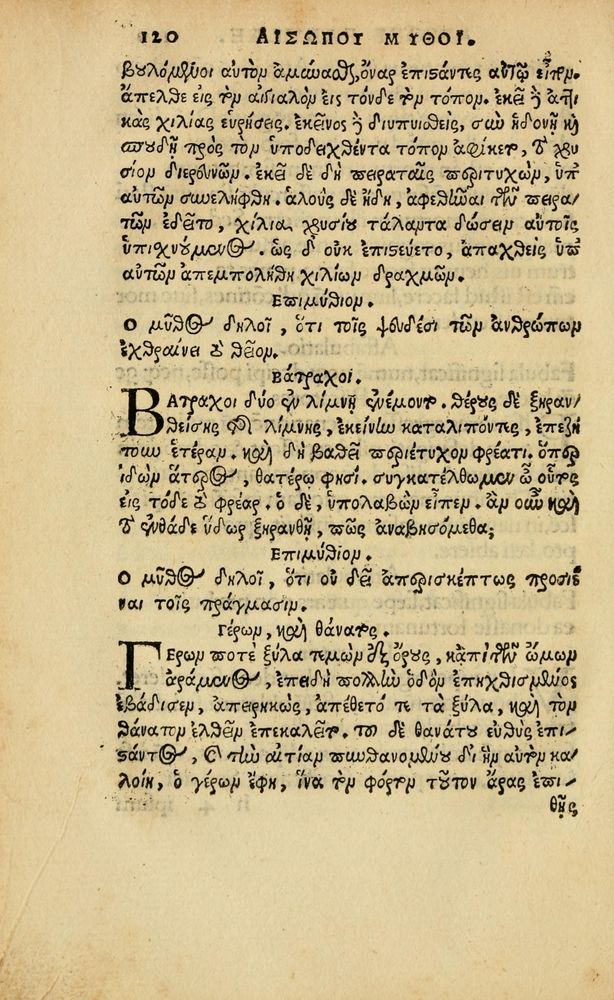 120 ΑΙΣΩΠΟΥ ΜΥΘΟΙ.
βουλόμενοι αὐτὸν ἀμύναθζ, ὄναρ ἐπιστάντες αὐτῷ εἶπον.
ἄπελθε εἰς τὸν αἰγιαλὸν εἰς τόνδε τὸν τόπον. ἐκεῖ γὰ ἀττι
κὰς χιλίας εὑρήσεις. ἐκεῖνος δὲ διυπνισθεὶς, σὺν ἡδονῇ καὶ
σπουδῇ πρὸς τὸν ὑποδειχθέντα τόπον ἀφίκετο, τὸ χρυ
σίον διερευνῶν. ἐκεῖ δὲ δὴ πειραταῖς περιτυχὼν, ὑπ
αὐτῶν συνελήφθη. ἁλοὺς δὲ ἤδη, ἀφεθῆναι τῶν πειρα-
τῶν ἐδεῖτο, χίλια χρυσίου τάλαντα δώσειν αὐτοῖς
ὑπισχνούμενος. ὡς δ' οὐκ ἐπιστεύετο, ἀπαχθεὶς ὑπ
αὐτῶν ἀπεμπολήθη χιλίων δραχμῶν.
Επιμύθιον.
Ο μῦθος δηλοῖ, ὅτι τοῖς ψευδέσι τῶν ἀνθρώπων
ἐχθραίνει τὸ θεῖον.
Βάτραχοι.
ΒΑτραχοι δύο ἐν λίμνῃ ἐνέμοντο. θέρους δὲ ξηραν-
θείσης τῆς λίμνης, ἐκείνην καταλιπόντες, ἐπεζή
τουν ἑτέραν. καὶ δὴ βαθεῖ περιέτυχον φρέατι. ὅπερ
ἰδὼν ἅτερος, θατέρῳ φησί. συγκατέλθωμεν ὦ οὗτος
εἰς τόδε τὸ φρέαρ. ὁ δὲ, ὑπολαβὼν εἶπεν. ἂν οὖν καὶ
τὸ ἐνθάδε ὕδωρ ξηρανθῇ, πῶς ἀναβησόμεθα;
Επιμύθιον.
Ο μῦθος δηλοῖ, ὅτι οὐ δεῖ ἀπερισκέπτως προσιέ
ναι τοῖς πράγμασιν.
Γέρων, καὶ θάνατος.
ΓΕρων ποτὲ ξύλα τεμὼν ἐξ ὄρους, κἀπὶ τῶν ὤμων
ἀράμενος, ἐπειδὴ πολλὴν ὁδὸν ἐπηχθισμένος
ἐβάδισεν, ἀπειρηκὼς, ἀπέθετό τε τὰ ξύλα, καὶ τὸν
θάνατον ἐλθεῖν ἐπεκαλεῖτο. τοῦ δὲ θανάτου εὐθὺς ἐπι-
στάντος, καὶ τὴν αἰτίαν πυνθανομένου δι' ἣν αὐτὸν κα-
λοίη, ὁ γέρων ἔφη, ἵνα τὸν φόρτον τοῦτον ἄρας ἐπι-
θῇς